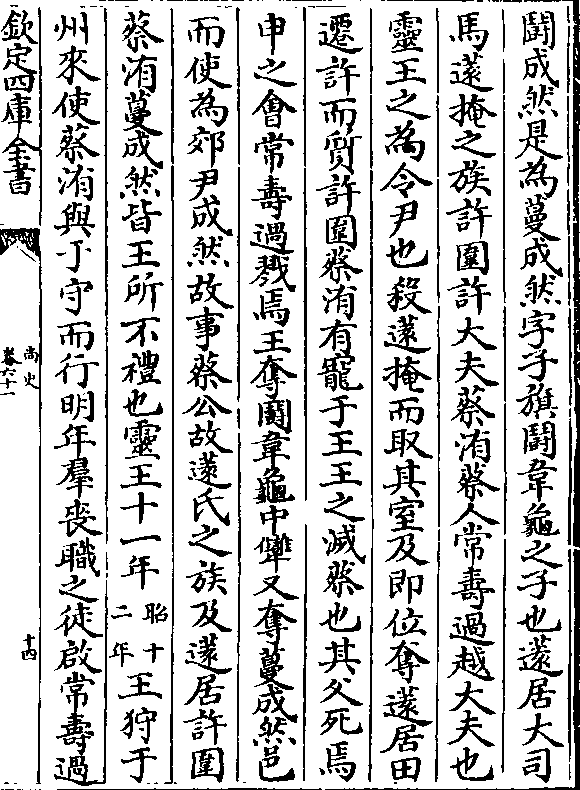 鬪成然是為蔓成然字子旗鬪韋龜之子也薳居大司
馬薳掩之族許圍許大夫蔡洧蔡人常壽過越大夫也
靈王之為令尹也殺薳掩而取其室及即位奪薳居田
遷許而質許圍蔡洧有寵于王王之滅蔡也其父死焉
申之會常壽過戮焉王奪鬪韋龜中犫又奪蔓成然邑
而使為郊尹成然故事蔡公故薳氏之族及薳居許圍
蔡洧蔓成然皆王所不禮也靈王十一年昭十二年王狩于
州來使蔡洧與于守而行明年羣喪職之徒啟常壽過
欽定四庫全書
尚史
卷六十一
十四